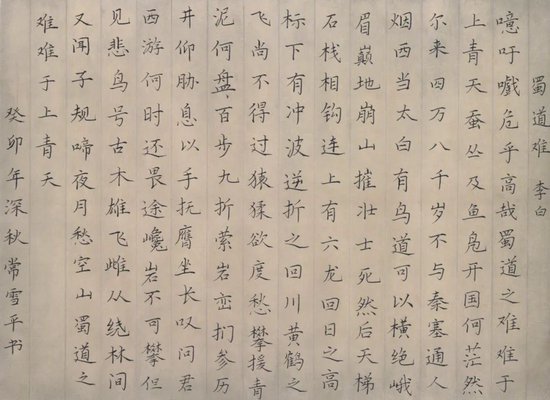 蜀道难 李白
噫吁嚱危乎高哉蜀道之难难于
上青天蚕丛及鱼凫开国何茫然
尔来四万八千岁不与秦塞通人
烟西当太白有鸟道可以横绝峨
眉巅地崩山摧壮士死然后天梯
石栈相钩连上有六龙回日之高
标下有冲波逆折之回川黄鹤之
飞尚不得过猿猱欲度愁攀援青
泥何盘、百步九折萦岩峦扪参历
井仰胁息以手抚膺坐长叹问君
西游何时还畏途巉岩不可攀但
见悲鸟号古木雄飞雌从绕林间
又闻子规啼夜月愁空山蜀道之
难难于上青天
癸卯年深秋常雪平书